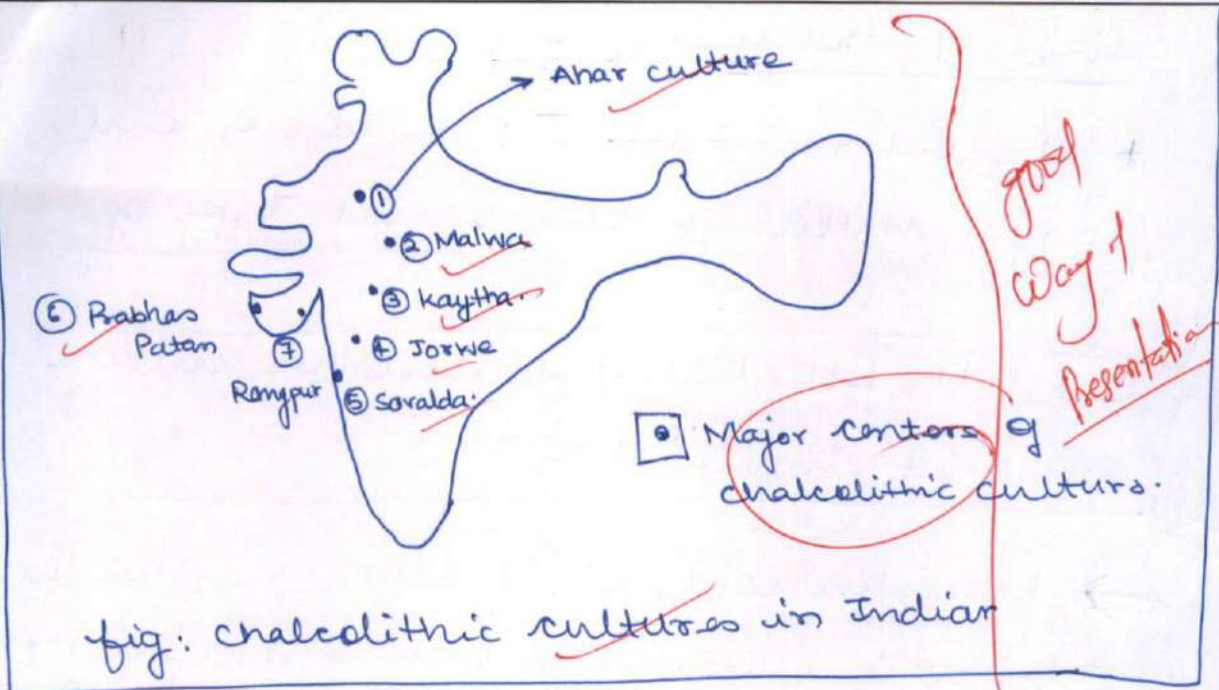 Ahar culture
①
② Malwa
③ Kaytha.
④ Jorwe
⑤ Savalda.
⑥ Prabhas
Patan
⑦
Rangpur
Major centers of
chalcolithic cultures.
fig: chalcolithic cultures in Indian
good
way of
Presentation